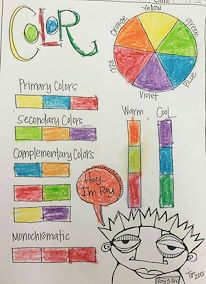 COLOR
Yellow
Orange
Green
Red
Blue
Violet
Primary Colors
Secondary Colors
Complementary Colors
Monochromatic
Warm
Cool
Hey
I'm Roy